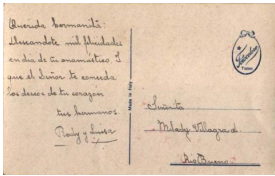 Querida hermanita:
Deseandote mil felicidades
en dia de tu onomástico. I
que el Señor te conceda
los deseos de tu corazón
tus hermanos.
Rody y Luisa
Made in Italy
Señorita
Mlady Villagrad
Rio Bueno